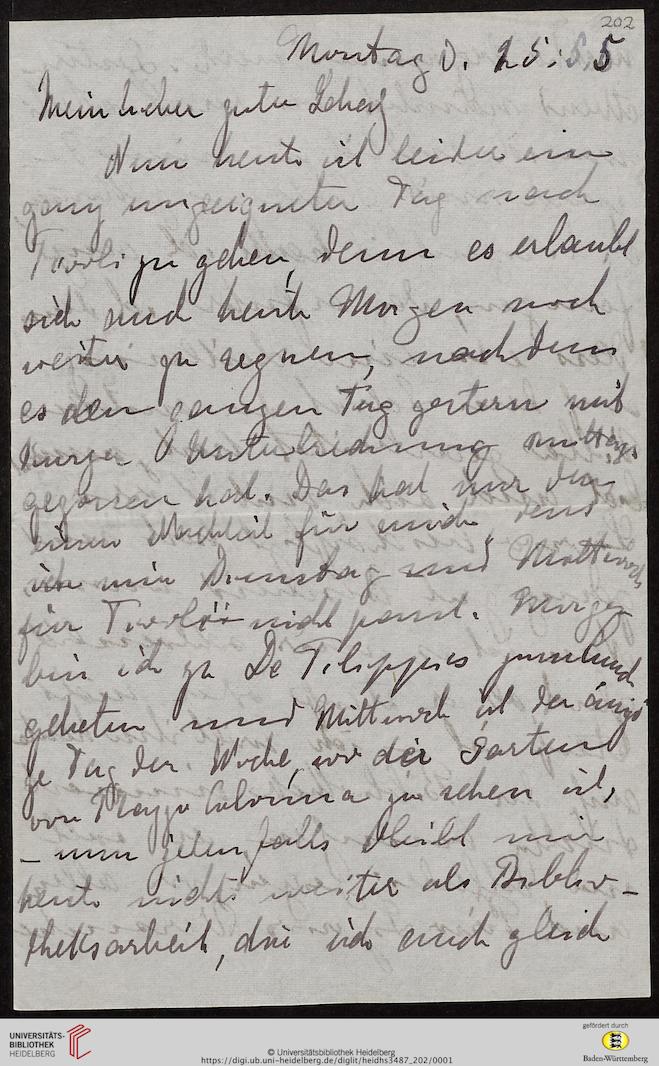 202
Montag d. 25.5.5
Mein lieber guter Schatz
Nun heute ist leider ein
ganz ungeeigneter Tag nach
Tivoli zu gehen, denn es erlaubt
sich und heute Morgen noch
weiter zu regnen, nachdem
es den ganzen Tag gestern mit
kurzer Unterbrechung mittags
gegossen hat. Das hat nur den
einen Nachteil für mich, dass
ich mir Dienstag und Mittwoch
für Tivoli nicht passt. Morgen
bin ich zu De Filippis zum lunch
gebeten und Mittwoch ist der einzi
ge Tag der Woche, wo der Garten
von Palazzo Colonna zu sehen ist,
– nun jedenfalls bleibt mir
heute nichts weiter als Biblio-
theksarbeit, die ich auch gleich
UNIVERSITÄTS-
BIBLIOTHEK
HEIDELBERG
© Universitätsbibliothek Heidelberg
https://digi.ub.uni-heidelberg.de/diglit/heidhs3487_202/0001
gefördert durch
Baden-Württemberg